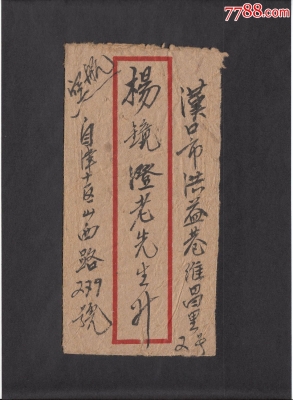 7788.com
漢口市洪益巷維昌里2号
楊鏡澄老先生升
自津十区山西路239號